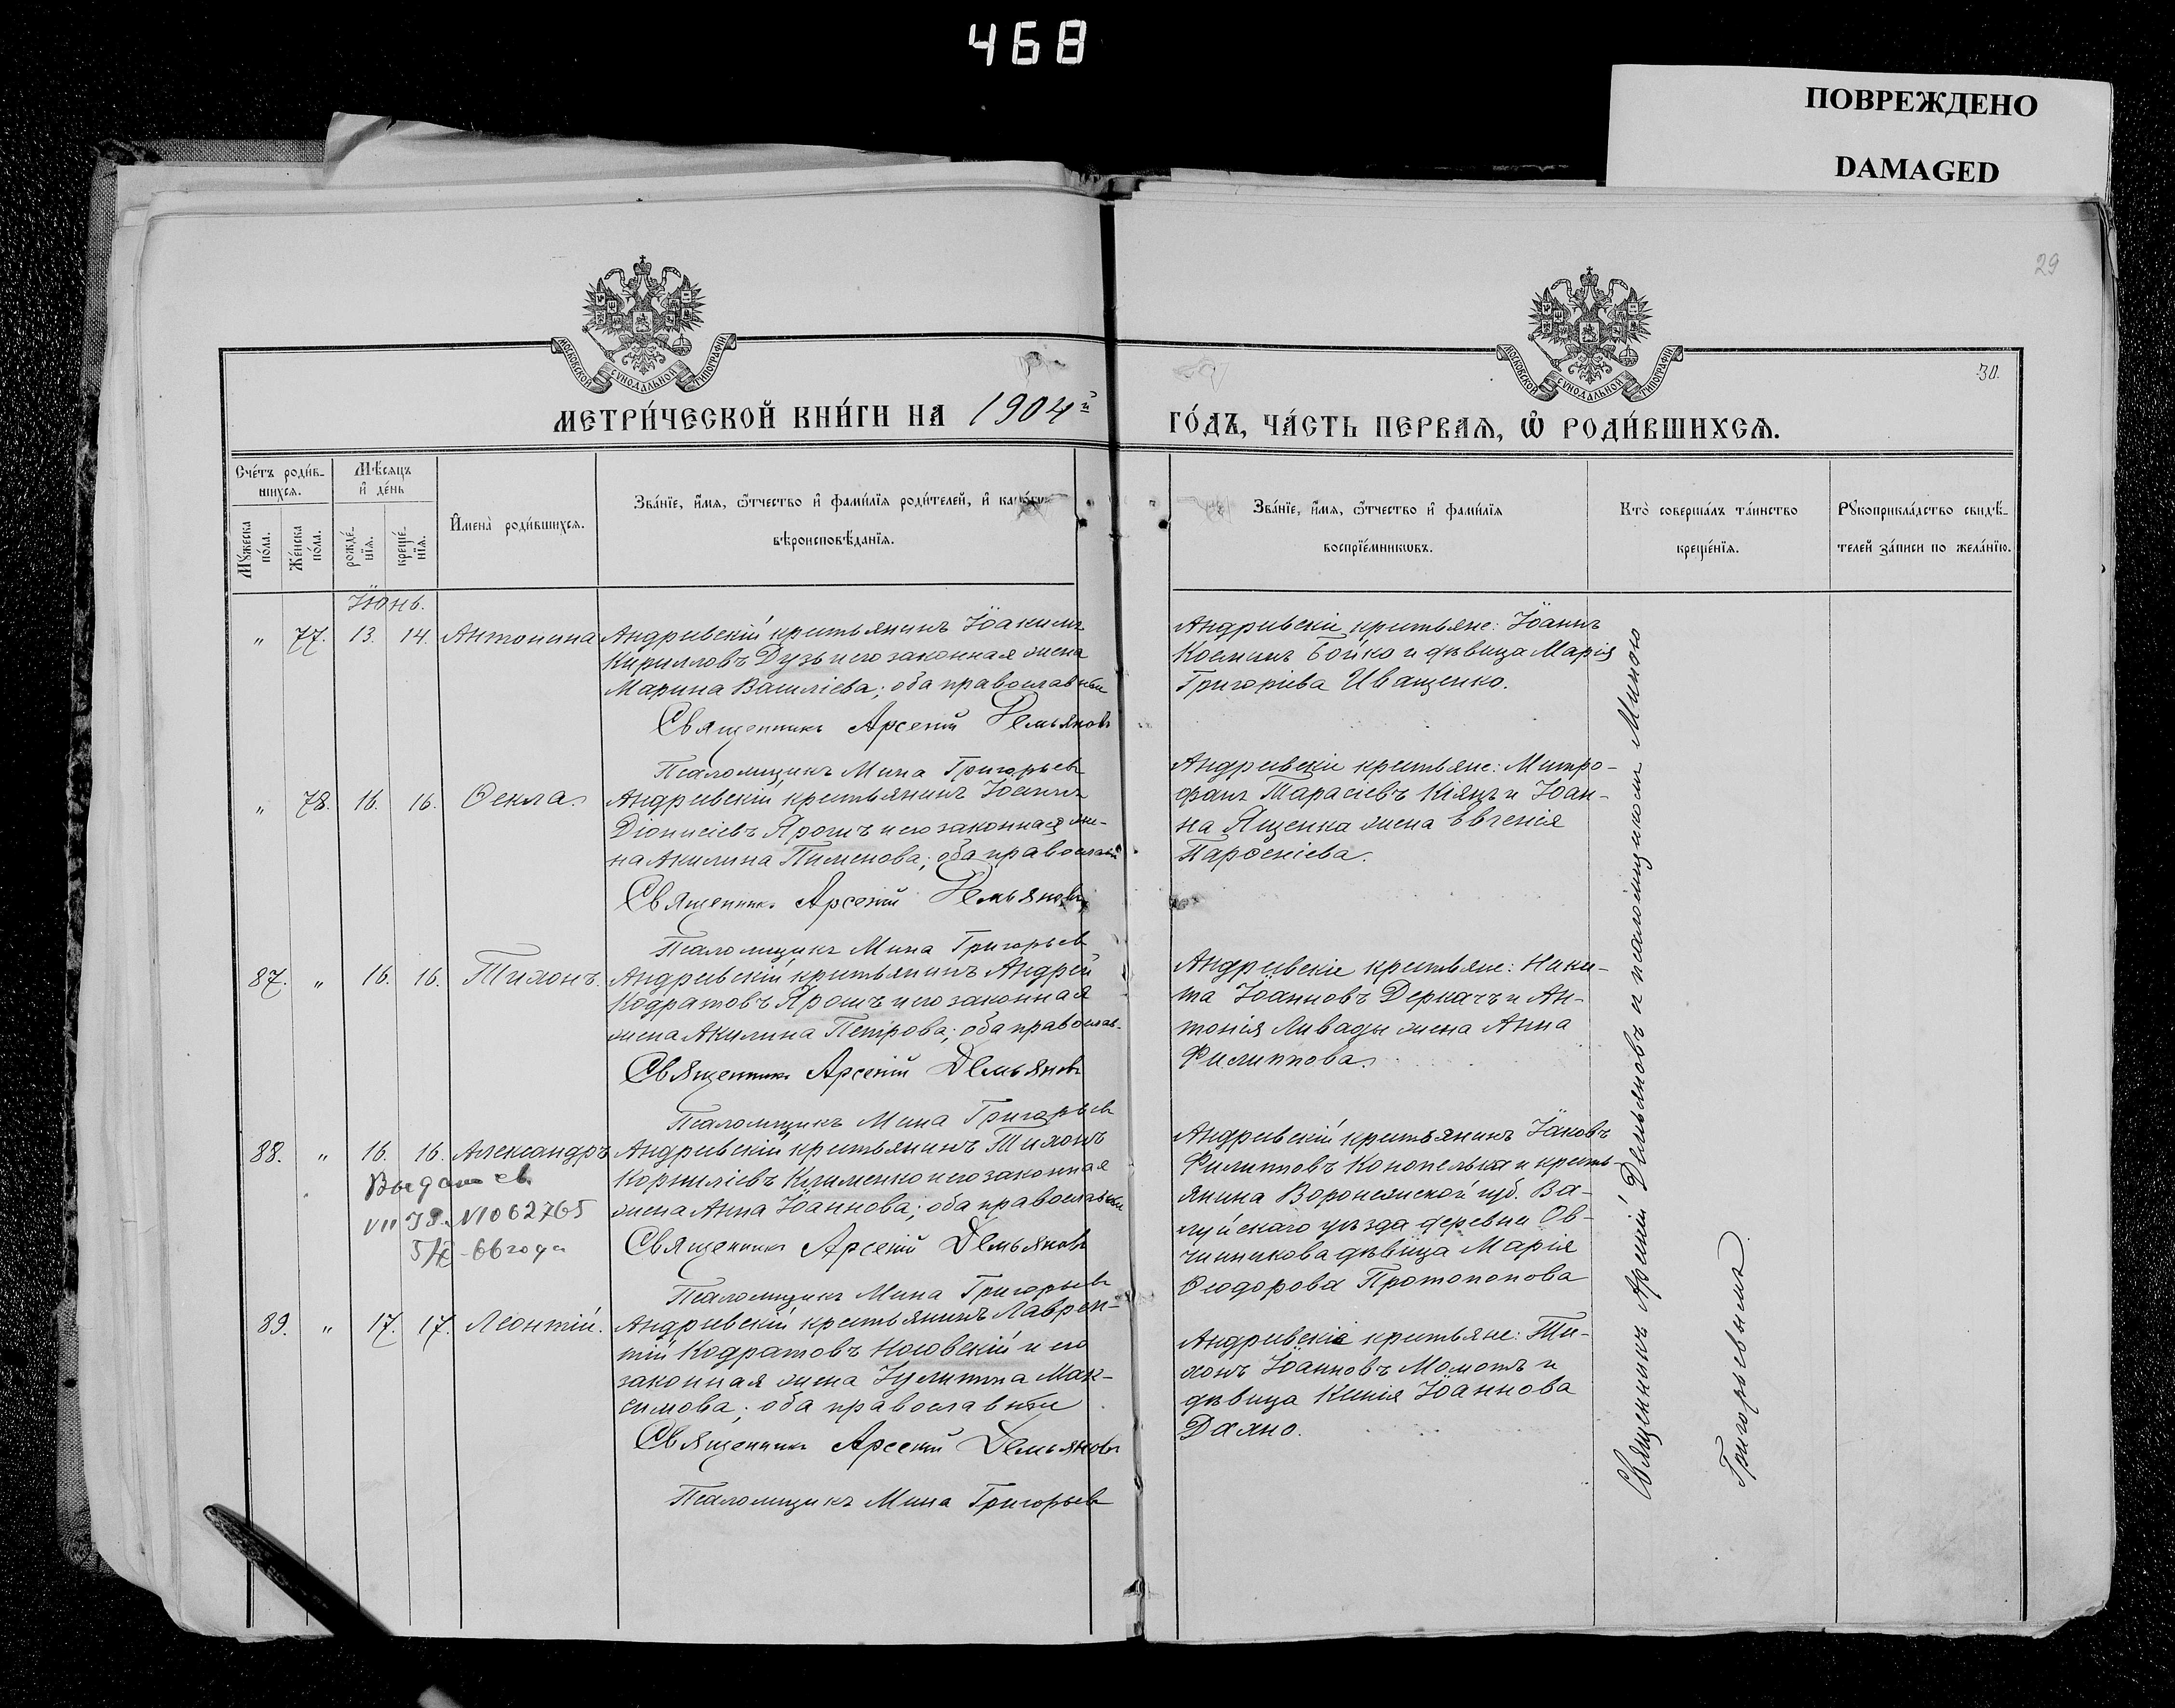 468
ПОВРЕЖДЕНО
DAMAGED
29
30.
МОСКОВСКОЙ СѴНОДАЛЬНОЙ ТИПОГРАФІИ
МОСКОВСКОЙ СѴНОДАЛЬНОЙ ТИПОГРАФІИ
МЕТРИ́ЧЕСКОЙ КНИ́ГИ НА 1904й
ГО́ДЪ, ЧА́СТЬ ПЕРВАѦ, Ѽ РОДИ́ВШИХСѦ.
Сче́тъ роди́в-
шихся.
Мꙋ́жеска по́ла.
Же́нска по́ла.
Мѣ́сяцъ
и҆ де́нь
рожде́-
нїя.
креще́-
нїя.
И҆мена̀ роди́вшихся.
Зва́нїе, и҆́мя, ѻ҆́тчество и҆ фами́лїя роди́телей, и҆
вѣроисповѣ́данїя.
Зва́нїе, и҆́мя, ѻ҆́тчество и҆ фами́лїя
воспрїе́мниковъ.
Кто̀ соверша́лъ та́инство
креще́нїя.
Рꙋкоприкла́дство свидѣ́-
телей за́писи по жела́нїю.
Іюнь.
" 77. 13. 14. Антонина
Андреевскій крестьянинъ Іоакимъ
Кирилловъ Дузь и его законная жена
Марина Василіева; оба православные
Священникъ Арсеній Демьяновъ
Псаломщикъ Мина Григорьевъ
Андреевскіе крестьяне: Іоаннъ
Космин Бойко и дѣвица Марія
Григоріева Иващенко.
" 78. 16. 16. Ѳекла.
Андреевскій крестьянинъ Іоаннъ
Діонисіевъ Ярошъ и его законная же-
на Акилина Пименова; оба православн
Священникъ Арсеній Демьяновъ
Псаломщикъ Мина Григорьев
Андреевскіе крестьяне: Митро-
фанъ Тарасіевъ Кіяцъ и Іоан-
на Ященка жена Евгенія
Парѳеніева.
87. " 16. 16. Тихонъ.
Андреевскій крестьянинъ Андрей
Кодратовъ Ярошъ и его законная
жена Акилина Петрова; оба православ.
Священникъ Арсеній Демьяновъ
Псаломщикъ Мина Григорьевъ
Андреевскіе крестьяне: Ники-
та Іоанновъ Деркачъ и Ан-
тонія Ливады жена Анна
Филиппова.
88. " 16. 16. Александръ
Выдано св.
VII ЯР N1062765
66 года
Андреевскій крестьянинъ Тихонъ
Корниліевъ Клименко и его законная
жена Анна Іоаннова; оба православные
Священникъ Арсеній Демьяновъ
Псаломщикъ Мина Григорьевъ
Андреевскій крестьянинъ Іаковъ
Филипповъ Конопелька и кресть-
янина Воронежской губ. Ва-
луйскаго уѣзда деревни Ов-
чинникова дѣвица Марія
Ѳеодорова Протопопова
89. " 17. 17. Леонтій.
Андреевскій крестьянинъ Лаврен-
тій Кодратовъ Носовскій и его
законная жена Іулитта Мак-
симова; оба православные
Священникъ Арсеній Демьяновъ
Псаломщикъ Мина Григорьевъ
Андреевскіе крестьяне: Ти-
хонъ Іоанновъ Момотъ и
дѣвица Ксенія Іоаннова
Дахно.
Священникъ Арсеній Демьяновъ и псаломщикомъ Миною
Григорьевымъ.